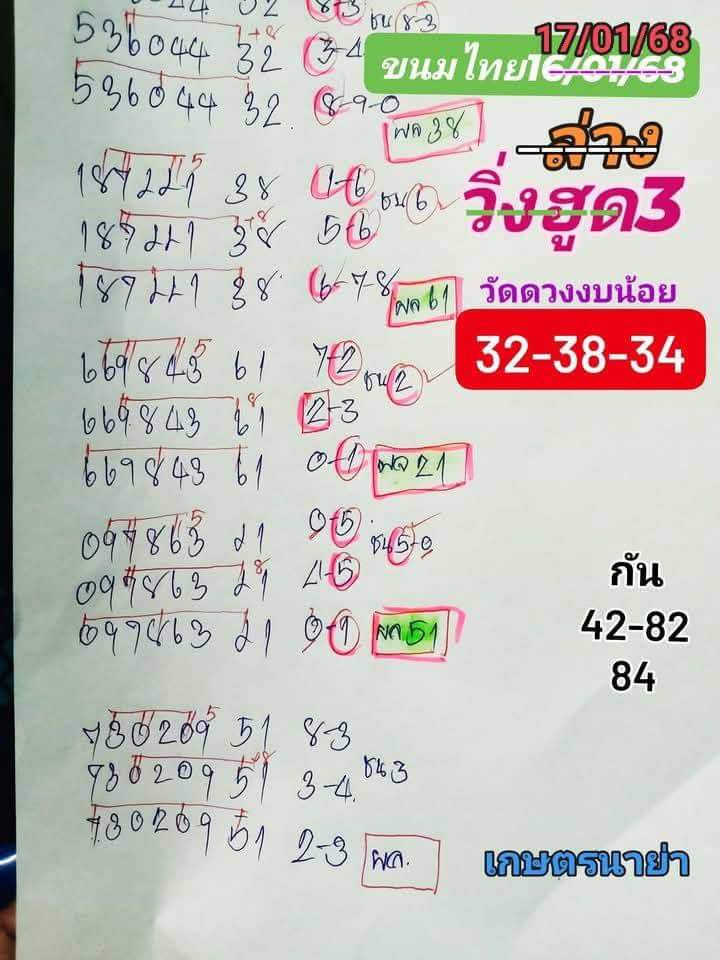 17/01/68
ขนมไทย16/01/68
ล่าง
วิ่งฮูด3
วัดดวงงบน้อย
32-38-34
กัน
42-82
84
เกษตรนาย่า
32 8-3 ชน 8-3
536044 32 3-4
+8
536044 32 8-9-0
ผล 38
5
187221 38 1-6 ชน 6
+8
187221 38 5-6
187221 38 6-7-8
ผล 61
5
669843 61 7-2 ชน 2
8
669843 61 2-3
669843 61 0-1 ผล 21
5
097863 21 0-5 ชน 5-0
8
097863 21 4-5
097863 21 0-1 ผล 51
5
730209 51 8-3
+8
730209 51 3-4 ชน 3
730209 51 2-3 ผล.